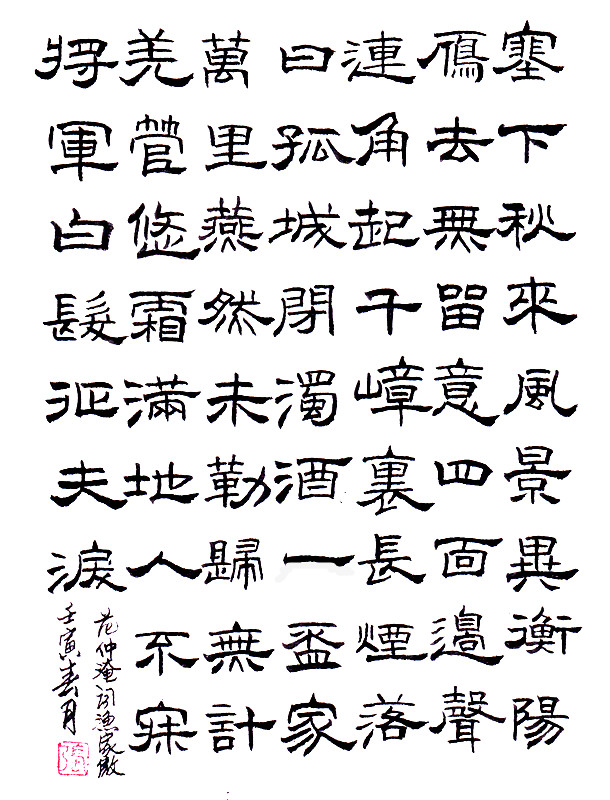 塞下秋來風景異衡陽
鴈去無留意四面邊聲
連角起千嶂裏長煙落
日孤城閉濁酒一盃家
萬里燕然未勒歸無計
羌管悠霜滿地人不寐
將軍白髮征夫淚
范仲淹詞漁家傲
壬寅春月